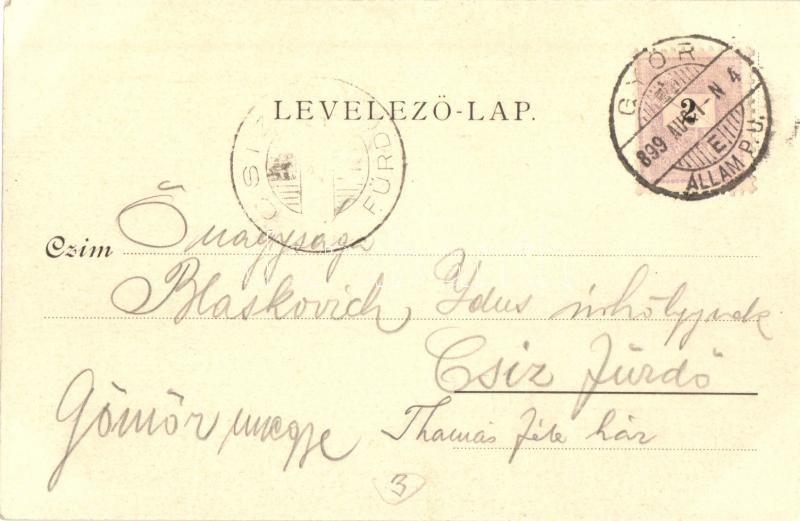 LEVELEZŐ-LAP.
GYŐR
899 AUG 1-N 4
E
ÁLLAM P.U.
2
CSIZ
FÜRDŐ
Czim Őnagysága
Blaskovich Idus úrhölgynek
Csiz Fürdő
Gömör megye
Thamás féle ház
3